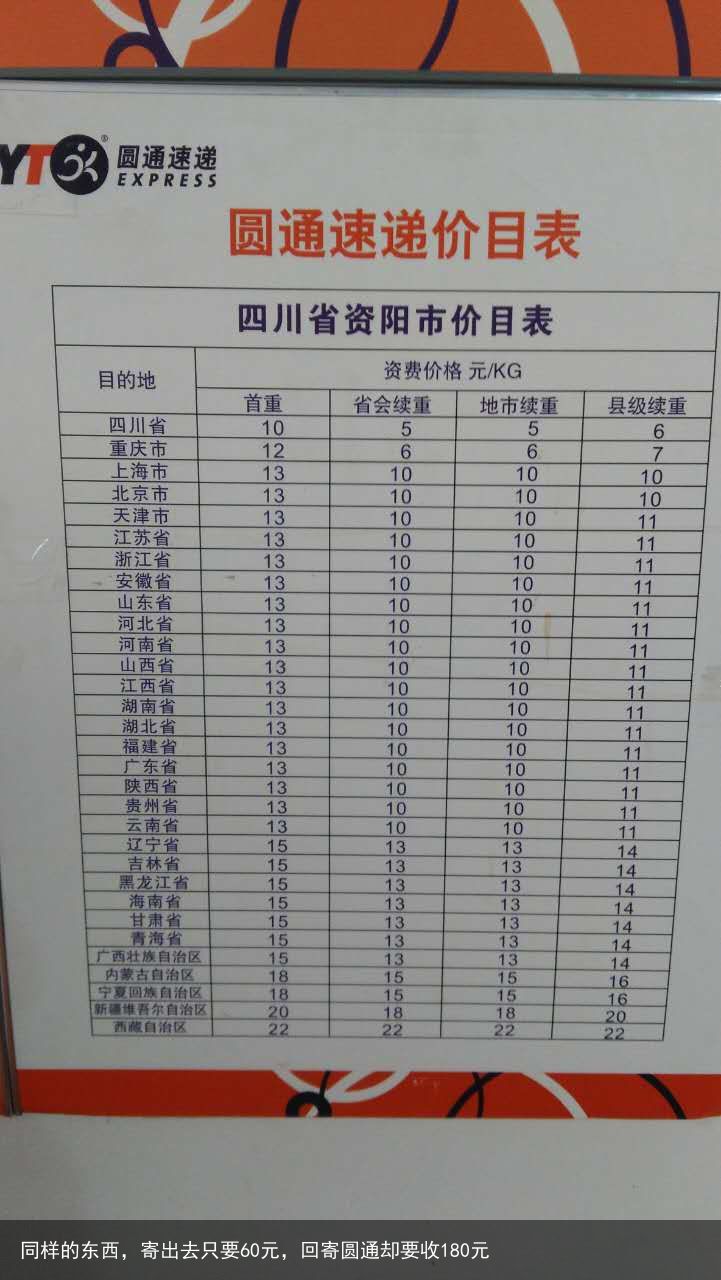 YTO® 圆通速递
EXPRESS
圆通速递价目表
四川省资阳市价目表
目的地 资费价格 元/KG
首重 省会续重 地市续重 县级续重
四川省 10 5 5 6
重庆市 12 6 6 7
上海市 13 10 10 10
北京市 13 10 10 10
天津市 13 10 10 11
江苏省 13 10 10 11
浙江省 13 10 10 11
安徽省 13 10 10 11
山东省 13 10 10 11
河北省 13 10 10 11
河南省 13 10 10 11
山西省 13 10 10 11
江西省 13 10 10 11
湖南省 13 10 10 11
湖北省 13 10 10 11
福建省 13 10 10 11
广东省 13 10 10 11
陕西省 13 10 10 11
贵州省 13 10 10 11
云南省 13 10 10 11
辽宁省 15 13 13 14
吉林省 15 13 13 14
黑龙江省 15 13 13 14
海南省 15 13 13 14
甘肃省 15 13 13 14
青海省 15 13 13 14
广西壮族自治区 15 13 13 14
内蒙古自治区 18 15 15 16
宁夏回族自治区 18 15 15 16
新疆维吾尔自治区 20 18 18 20
西藏自治区 22 22 22 22
同样的东西，寄出去只要60元，回寄圆通却要收180元